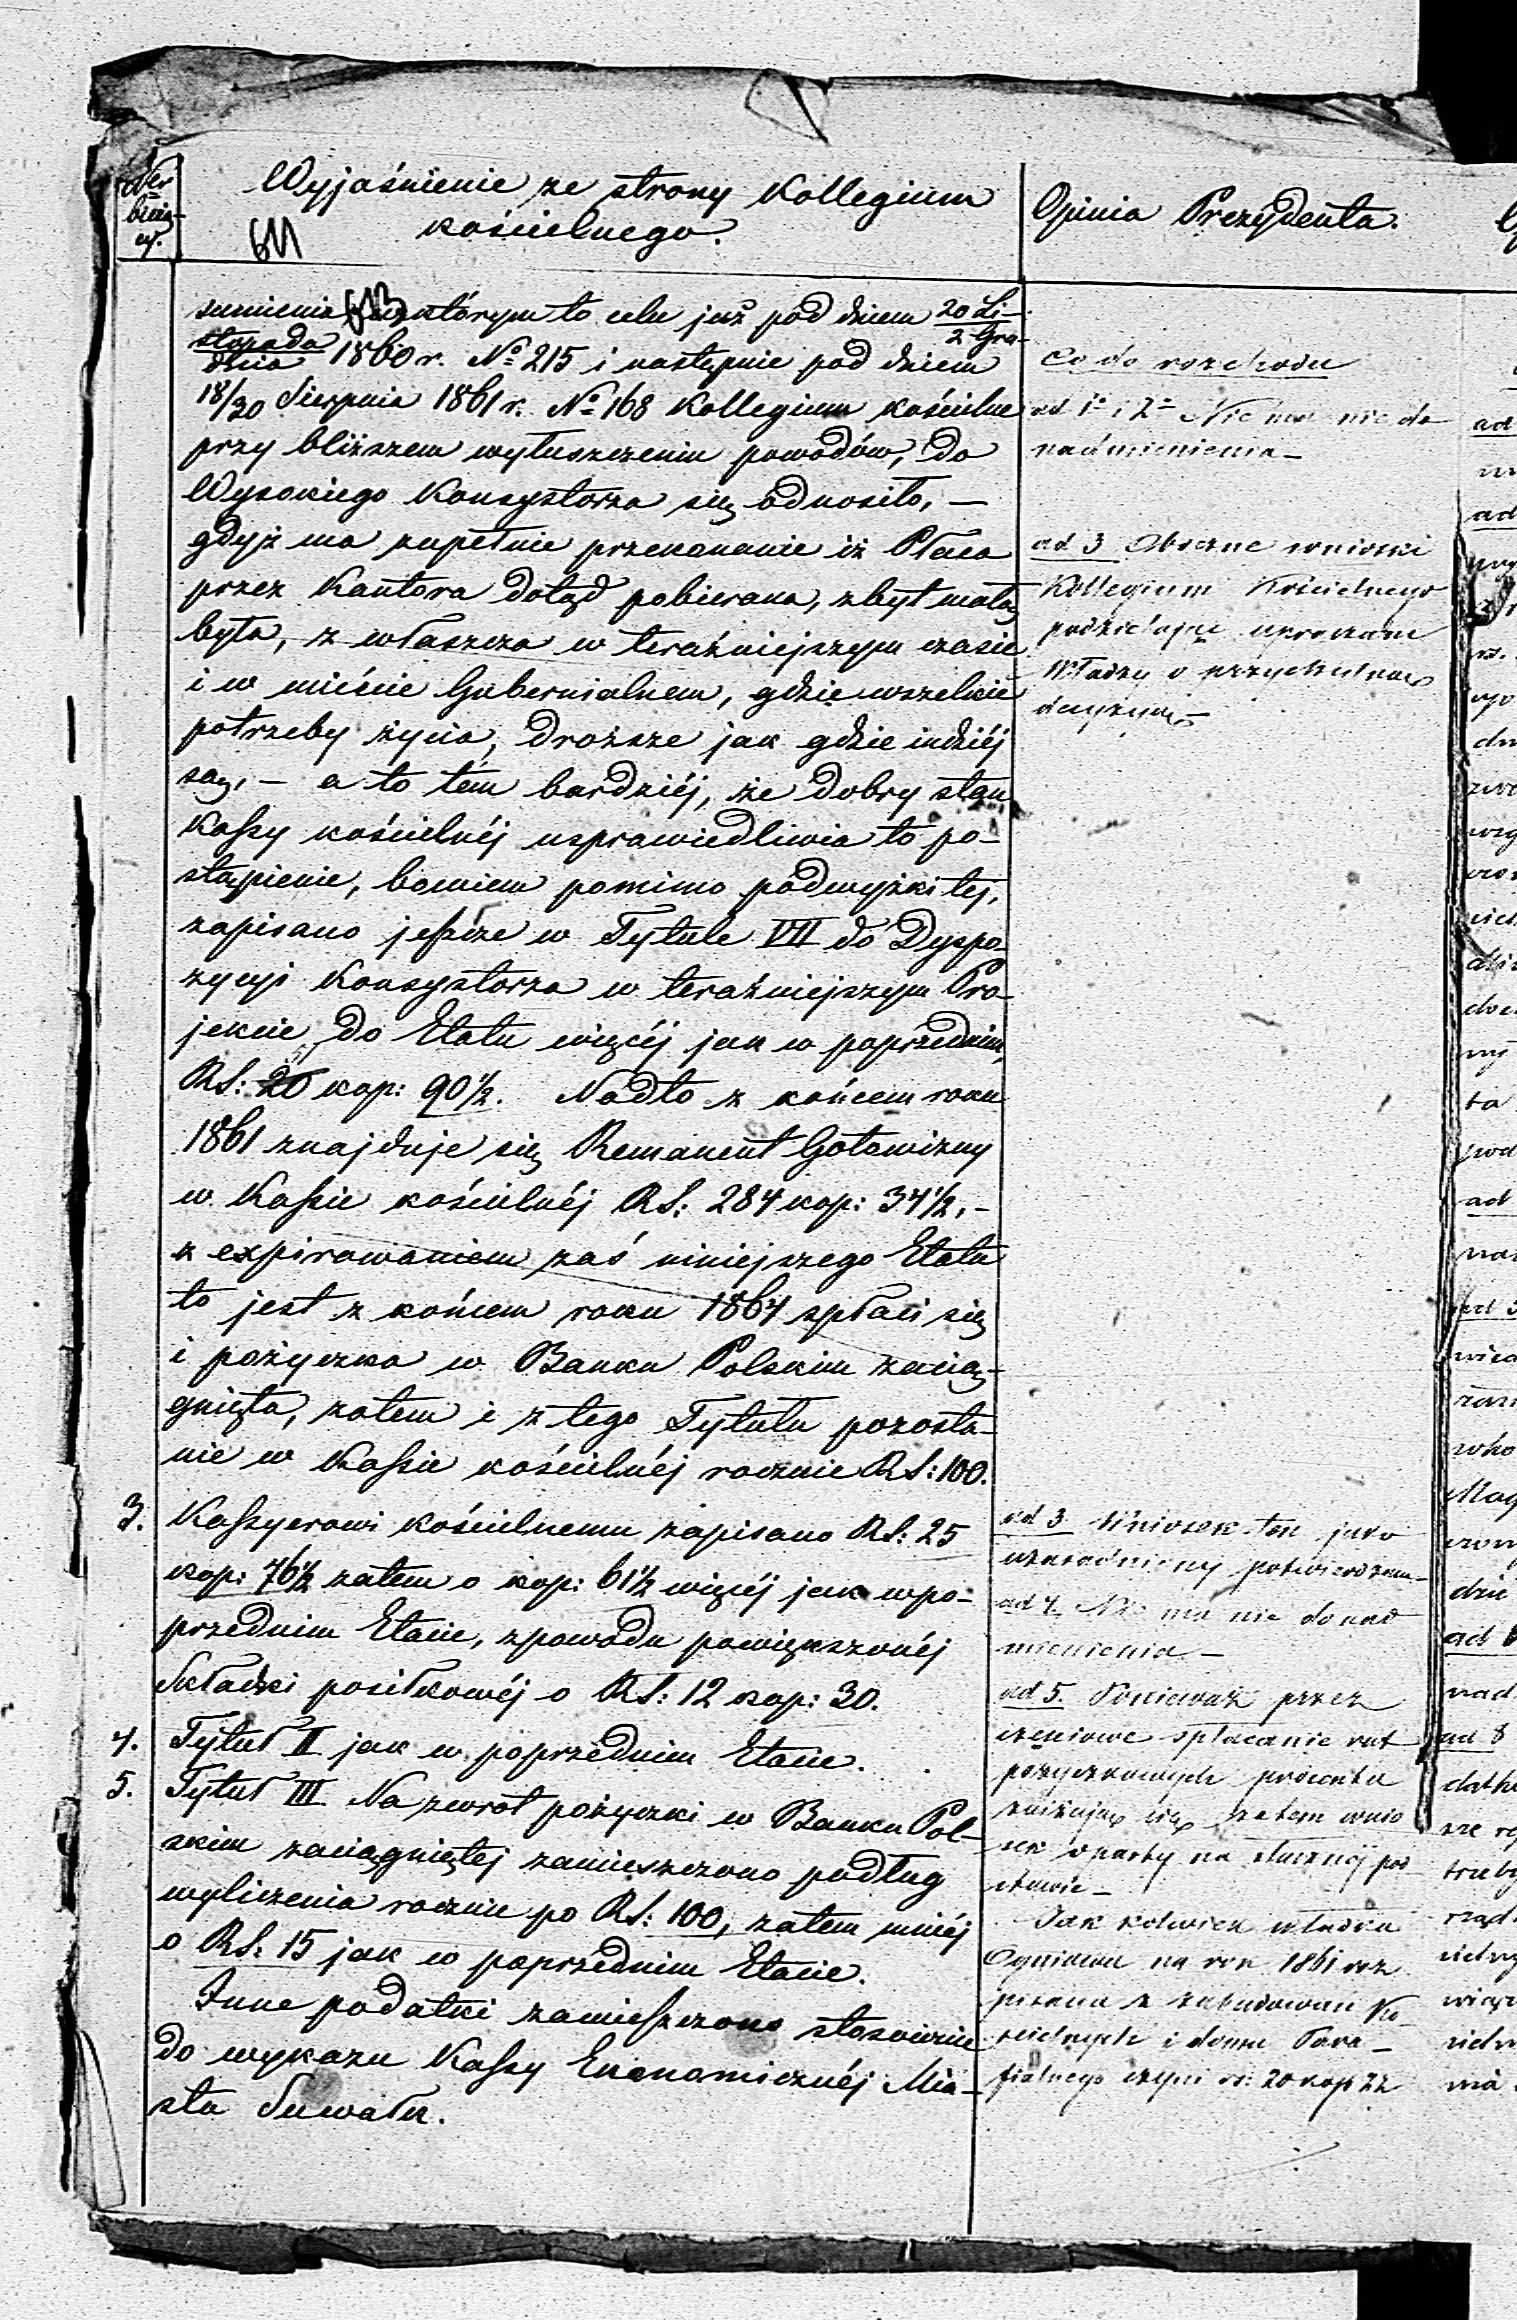 Ner
bieżą-
cy.
Wyjaśnienie ze strony Kollegium
kościelnego.
611
Opinia Prezydenta.
sumienia, 613 w którym to celu już pod dniem 20 Li-
stopada 2 Gru-
dnia 1860 r. No 215 i następnie pod dniem
18/30 Sierpnia 1861 r. No 168 Kollegium kościelne
przy bliższem wyłuszczeniu powodów, do
Wysokiego Konsystorza się odnosiło, —
gdyż ma zupełnie przekonanie iż Płaca
przez Kantora dotąd pobierana, zbyt małą
była, z właszcza w teraźniejszym czasie
i w mieście Gubernialnem, gdzie wszelkie
potrzeby życia, droższe jak gdzie indziéj
są, — a to tém bardziéj, że dobry stan
Kassy kościelnéj usprawiedliwia to po-
stąpienie, bowiem pomimo podwyżki téj,
zapisano jeszcze w Tytule VII do Dyspo-
zycyi Konsystorza w teraźniejszym Pro-
jekcie do Etatu więcéj jak w poprzednim,
RS: kop: 90½. Nadto z końcem roku
1861 znajduje się Remanent Gotowizny
w Kassie kościelnéj RS: 284 kop: 34½, -
z expirowaniem zaś niniejszego Etatu
to jest z końcem roku 1864 spłaci się
i pożyczka w Banku Polskim zacią-
gnięta, zatem i z tego Tytułu pozosta-
nie w Kassie kościelnéj rocznie RS: 100.
3. Kassyerowi kościelnemu zapisano RS: 25
kop: 76½ zatem o kop: 61½ więcéj jak w po-
przednim Etacie, z powodu powiększonéj
Składki posiłkowéj o RS: 12 kop: 30.
4. Tytuł II jak w poprzednim Etacie.
5. Tytuł III. Na zwrot pożyczki w Banku Pol-
skim zaciągniętej zamieszczono podług
wyliczenia rocznie po RS: 100, zatem mniéj
o RS: 15 jak w poprzednim Etacie.
Inne podatki zamieszczono stosownie
do wykazu Kassy Ekonomicznéj Mia-
sta Suwałk.
Co do rozchodu
ad 1o i 2o Nie ma nic do
nadmienienia —
ad 3 Oboczne wnioski
Kollegium Kościelnego
podzielając upraszam
Władzy o przychylną
decyzyą —
ad 3. Wniosek ten jako
uzasadniony potwierdzam —
ad 4. Nie ma nic do nad
mienienia —
ad 5. Ponieważ przez
częściowe spłacanie rat
pożyczkowych procenta
zniżają się zatem wnio
sek oparty na słusznéj pod
stawie —
Jak kolwiek składka
Ogniowa na rok 1861 roz
pisana z zabudowań Ko-
ścielnych i domu Para-
fialnego czyni rs: 20 kop 22